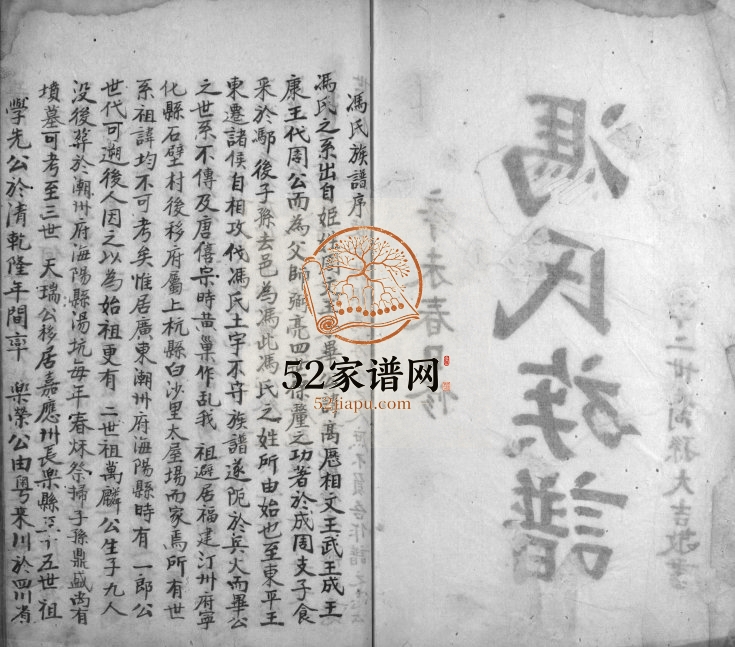 馮氏族譜序
馮氏之系出自姬姓周文王畢高歷相文王武王成王
康王代周公而為父師弼亮四釐之功著於成周支子食
采於鄢後子孫去邑為馮此馮氏之姓所由始也至東平王
東遷諸侯自相攻伐馮氏土宇不守族譜遂阨於兵火而畢公
之世系不傳及唐僖宗時黄巢作乱我祖避居福建汀州府寧
化縣石壁村後移府屬上杭縣白沙里太屋塲而家焉所有世
系祖諱均不可考矣惟居廣東潮州府海陽縣時有一郎公
世代可遡後人因之以為始祖更有二世祖萬麟公生子九人
没後葬於潮州府海陽縣湯坑每年春秌祭掃子孫鼎盛尚有
墳墓可考至三世天瑞公移居嘉應州長樂縣十五世祖
學先公於清乾隆年間率樂榮公由粤来川於四川省
馮氏族譜
辛未春月修
二世嗣孫大吉敬
52家谱网
52jiapu.com